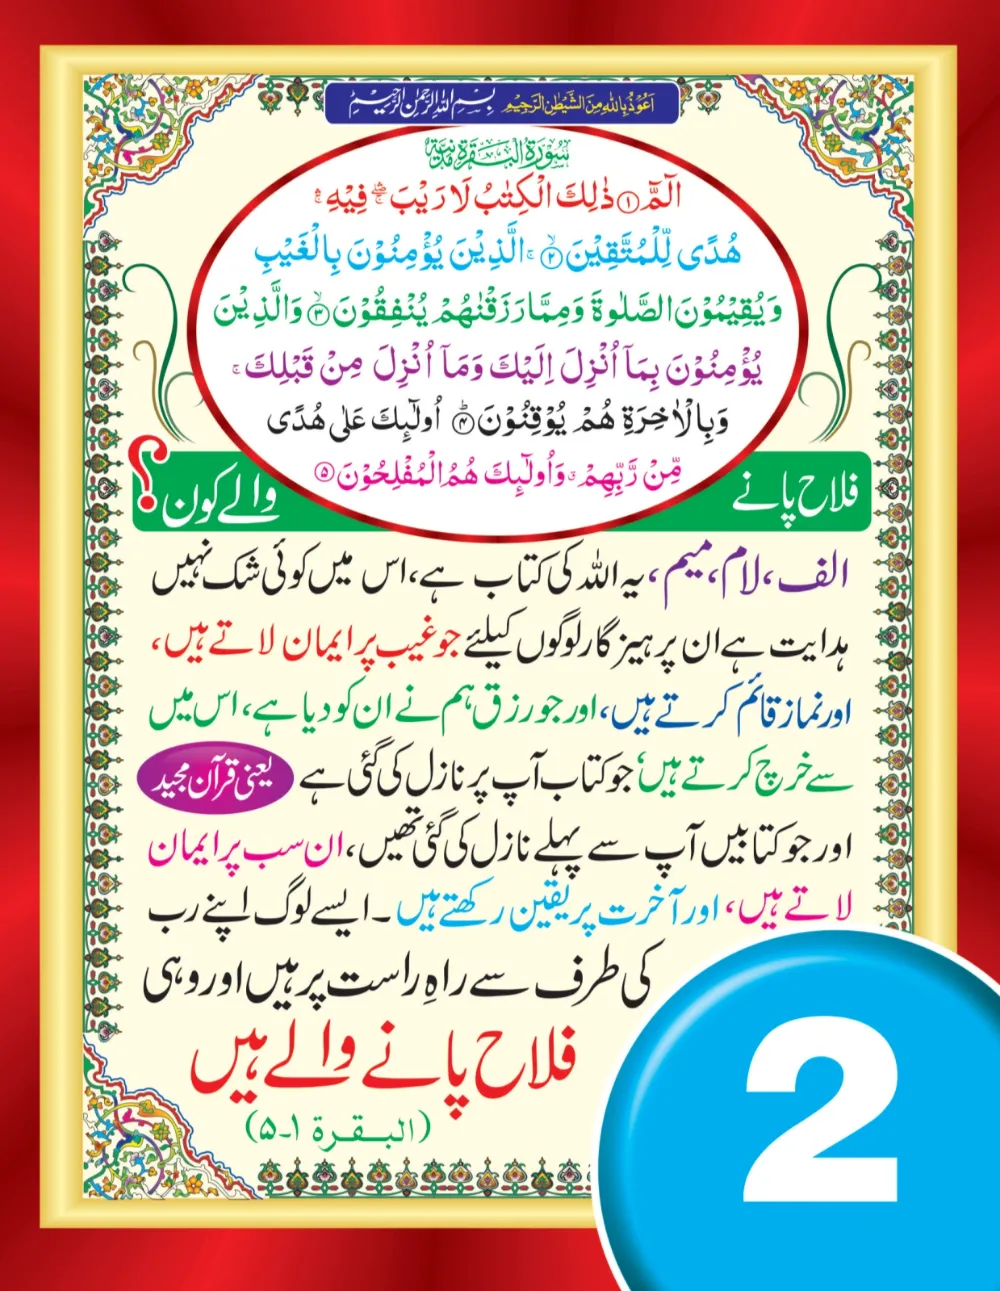 اَعُوْذُ بِاللّٰهِ مِنَ الشَّيْطٰنِ الرَّجِيْمِ بِسْمِ اللّٰهِ الرَّحْمٰنِ الرَّحِيْمِ
سُوْرَةُ الْبَقَرَةِ مَدَنِيَّة
الٓمّٓ ۚ﴿۱﴾ ذٰلِكَ الْكِتٰبُ لَا رَيْبَ ۛۖ فِيْهِ ۛۚ
هُدًى لِّلْمُتَّقِيْنَ ۙ﴿۲﴾ الَّذِيْنَ يُؤْمِنُوْنَ بِالْغَيْبِ
وَيُقِيْمُوْنَ الصَّلٰوةَ وَمِمَّا رَزَقْنٰهُمْ يُنْفِقُوْنَ ۙ﴿۳﴾ وَالَّذِيْنَ
يُؤْمِنُوْنَ بِمَآ اُنْزِلَ اِلَيْكَ وَمَآ اُنْزِلَ مِنْ قَبْلِكَ ۚ
وَبِالْاٰخِرَةِ هُمْ يُوْقِنُوْنَ ؕ﴿۴﴾ اُولٰٓئِكَ عَلٰى هُدًى
مِّنْ رَّبِّهِمْ ۗ وَاُولٰٓئِكَ هُمُ الْمُفْلِحُوْنَ ﴿۵﴾
فلاح پانے والے کون؟
الف، لام، میم، یہ اللہ کی کتاب ہے، اس میں کوئی شک نہیں
ہدایت ہے ان پرہیز گار لوگوں کیلئے جو غیب پر ایمان لاتے ہیں،
اور نماز قائم کرتے ہیں، اور جو رزق ہم نے ان کو دیا ہے، اس میں
سے خرچ کرتے ہیں' جو کتاب آپ پر نازل کی گئی ہے یعنی قرآن مجید
اور جو کتابیں آپ سے پہلے نازل کی گئی تھیں، ان سب پر ایمان
لاتے ہیں، اور آخرت پر یقین رکھتے ہیں۔ ایسے لوگ اپنے رب
کی طرف سے راہِ راست پر ہیں اور وہی
فلاح پانے والے ہیں
(البقرة ۱۔۵)
2